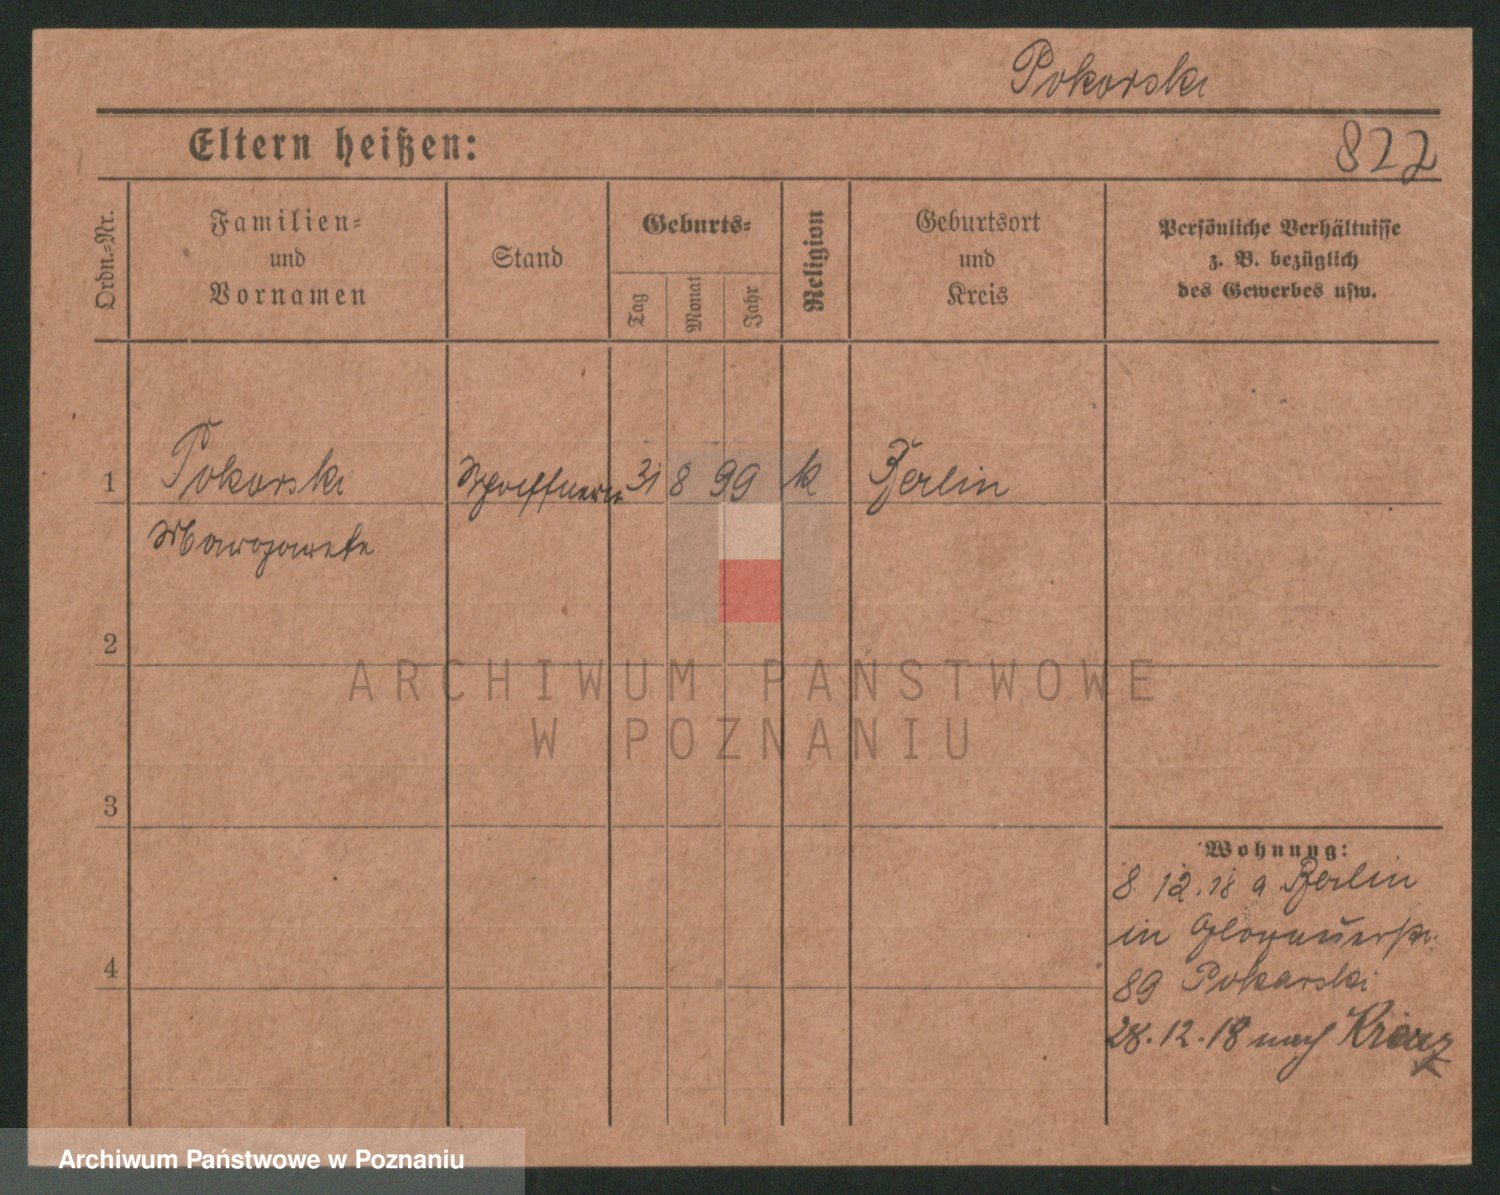 Pokorski
Eltern heißen:
822
Ordn.-Nr.
Familien-
und
Vornamen
Stand
Geburts-
Tag
Monat
Jahr
Religion
Geburtsort
und
Kreis
Persönliche Verhältnisse
z. B. bezüglich
des Gewerbes usw.
1 Pokorski Schaffnerin 31 8 99 k Berlin
Margarete
2
3
4
Wohnung:
8 12.18 a Berlin
in Glogauerstr.
89 Pokarski
28.12.18 nach
ARCHIWUM PAŃSTWOWE
W POZNANIU
Archiwum Państwowe w Poznaniu